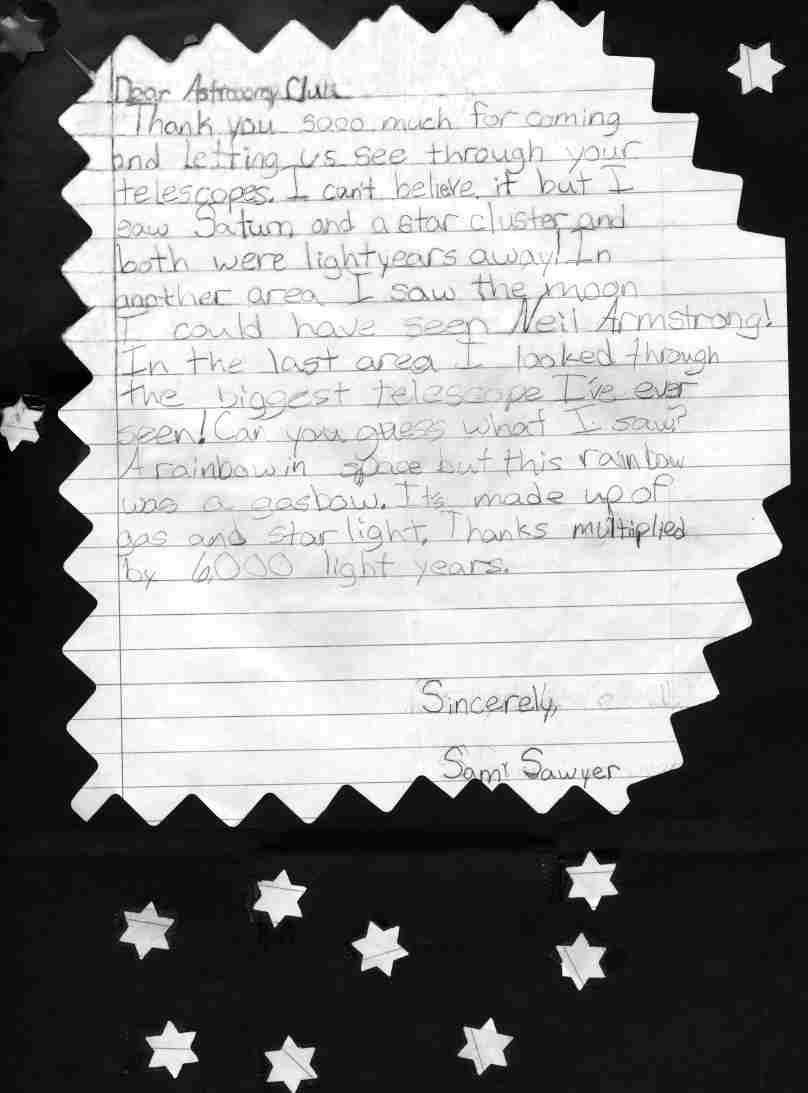 Dear Astronomy Club
Thank you sooo much for coming
and letting us see through your
telescopes. I can't believe it but I
saw Saturn and a star cluster and
both were lightyears away! In
another area I saw the moon
I could have seen Neil Armstrong!
In the last area I looked through
the biggest telescope I've ever
seen! Can you guess what I saw?
A rainbow in space but this rainbow
was a gasbow. Its made up of
gas and starlight. Thanks multiplied
by 6,000 light years.
Sincerely,
Sami Sawyer